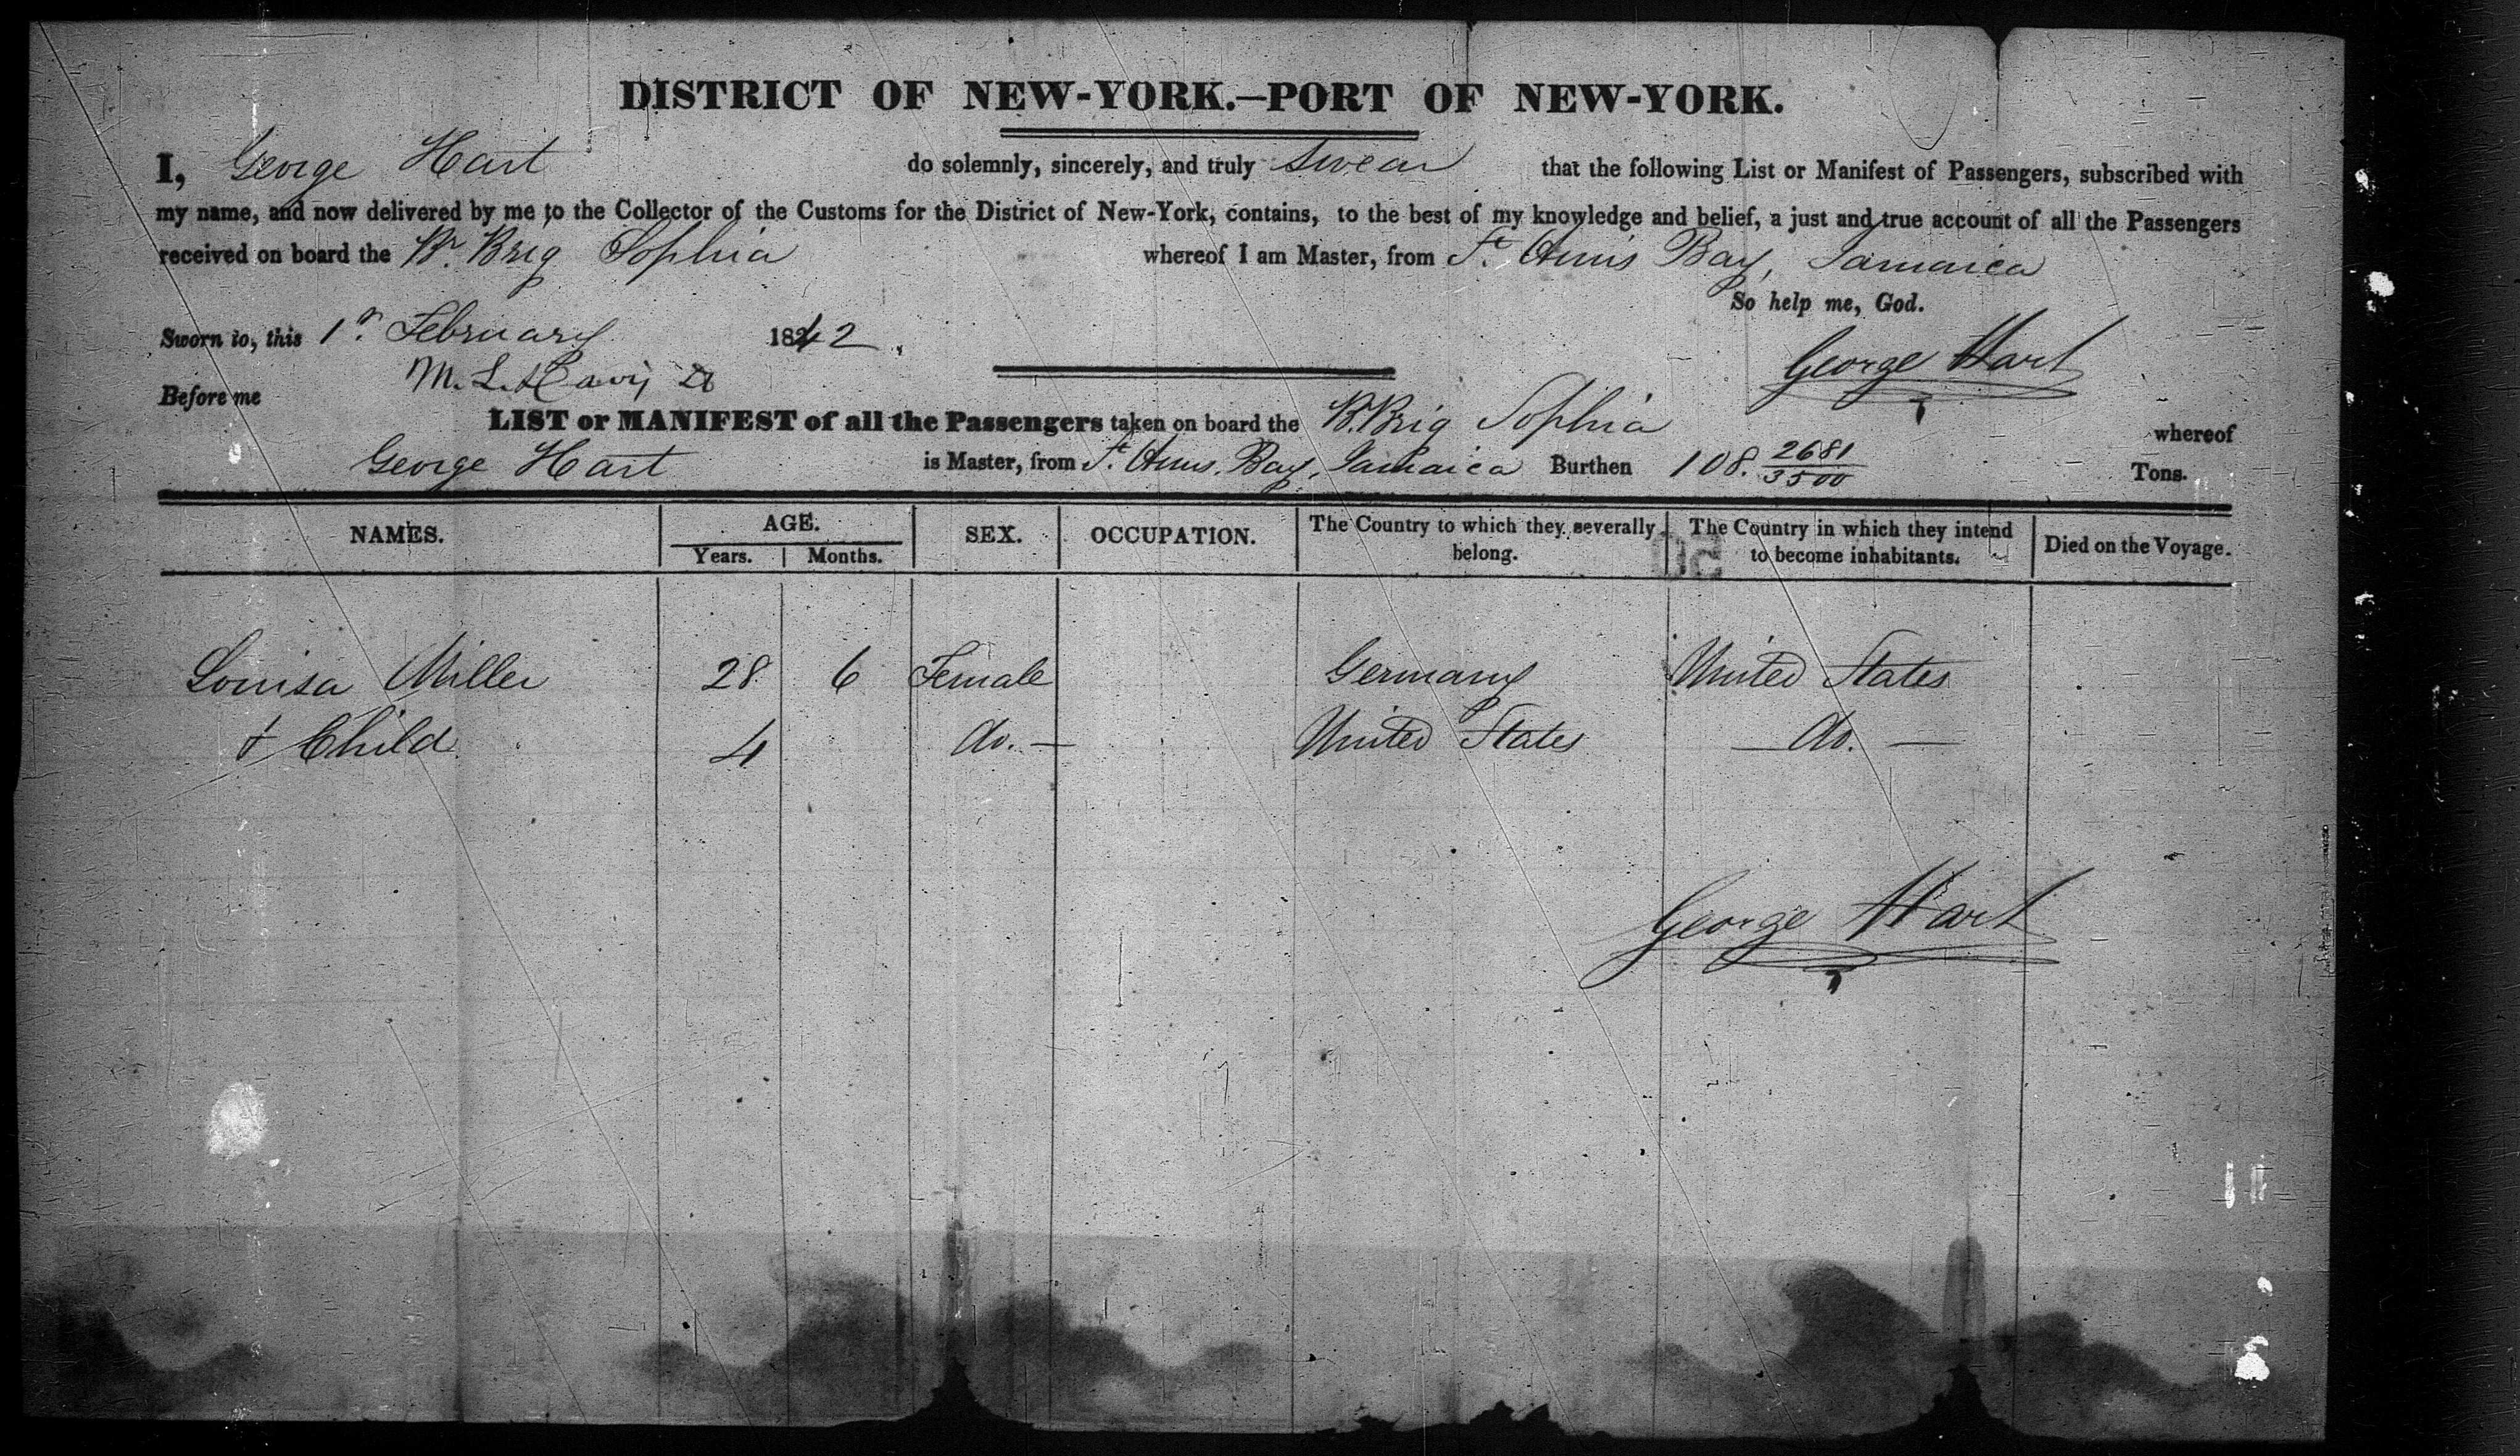 DISTRICT OF NEW-YORK.—PORT OF NEW-YORK.
I, George Hart do solemnly, sincerely, and truly Swear that the following List or Manifest of Passengers, subscribed with
my name, and now delivered by me to the Collector of the Customs for the District of New-York, contains, to the best of my knowledge and belief, a just and true account of all the Passengers
received on board the Br. Brig Sophia whereof I am Master, from St. Anns Bay, Jamaica
So help me, God.
Sworn to, this 1st February 1842
George Hart
Before me M. L.
LIST or MANIFEST of all the Passengers taken on board the Br. Brig Sophia whereof
George Hart is Master, from St. Anns Bay, Jamaica Burthen 108. 2681/3500 Tons.
NAMES. AGE. SEX. OCCUPATION. The Country to which they severally belong. The Country in which they intend to become inhabitants. Died on the Voyage.
Years. Months.
Louisa Miller 28 6 Female Germany United States
+ Child 4 Do. — United States — Do. —
George Hart